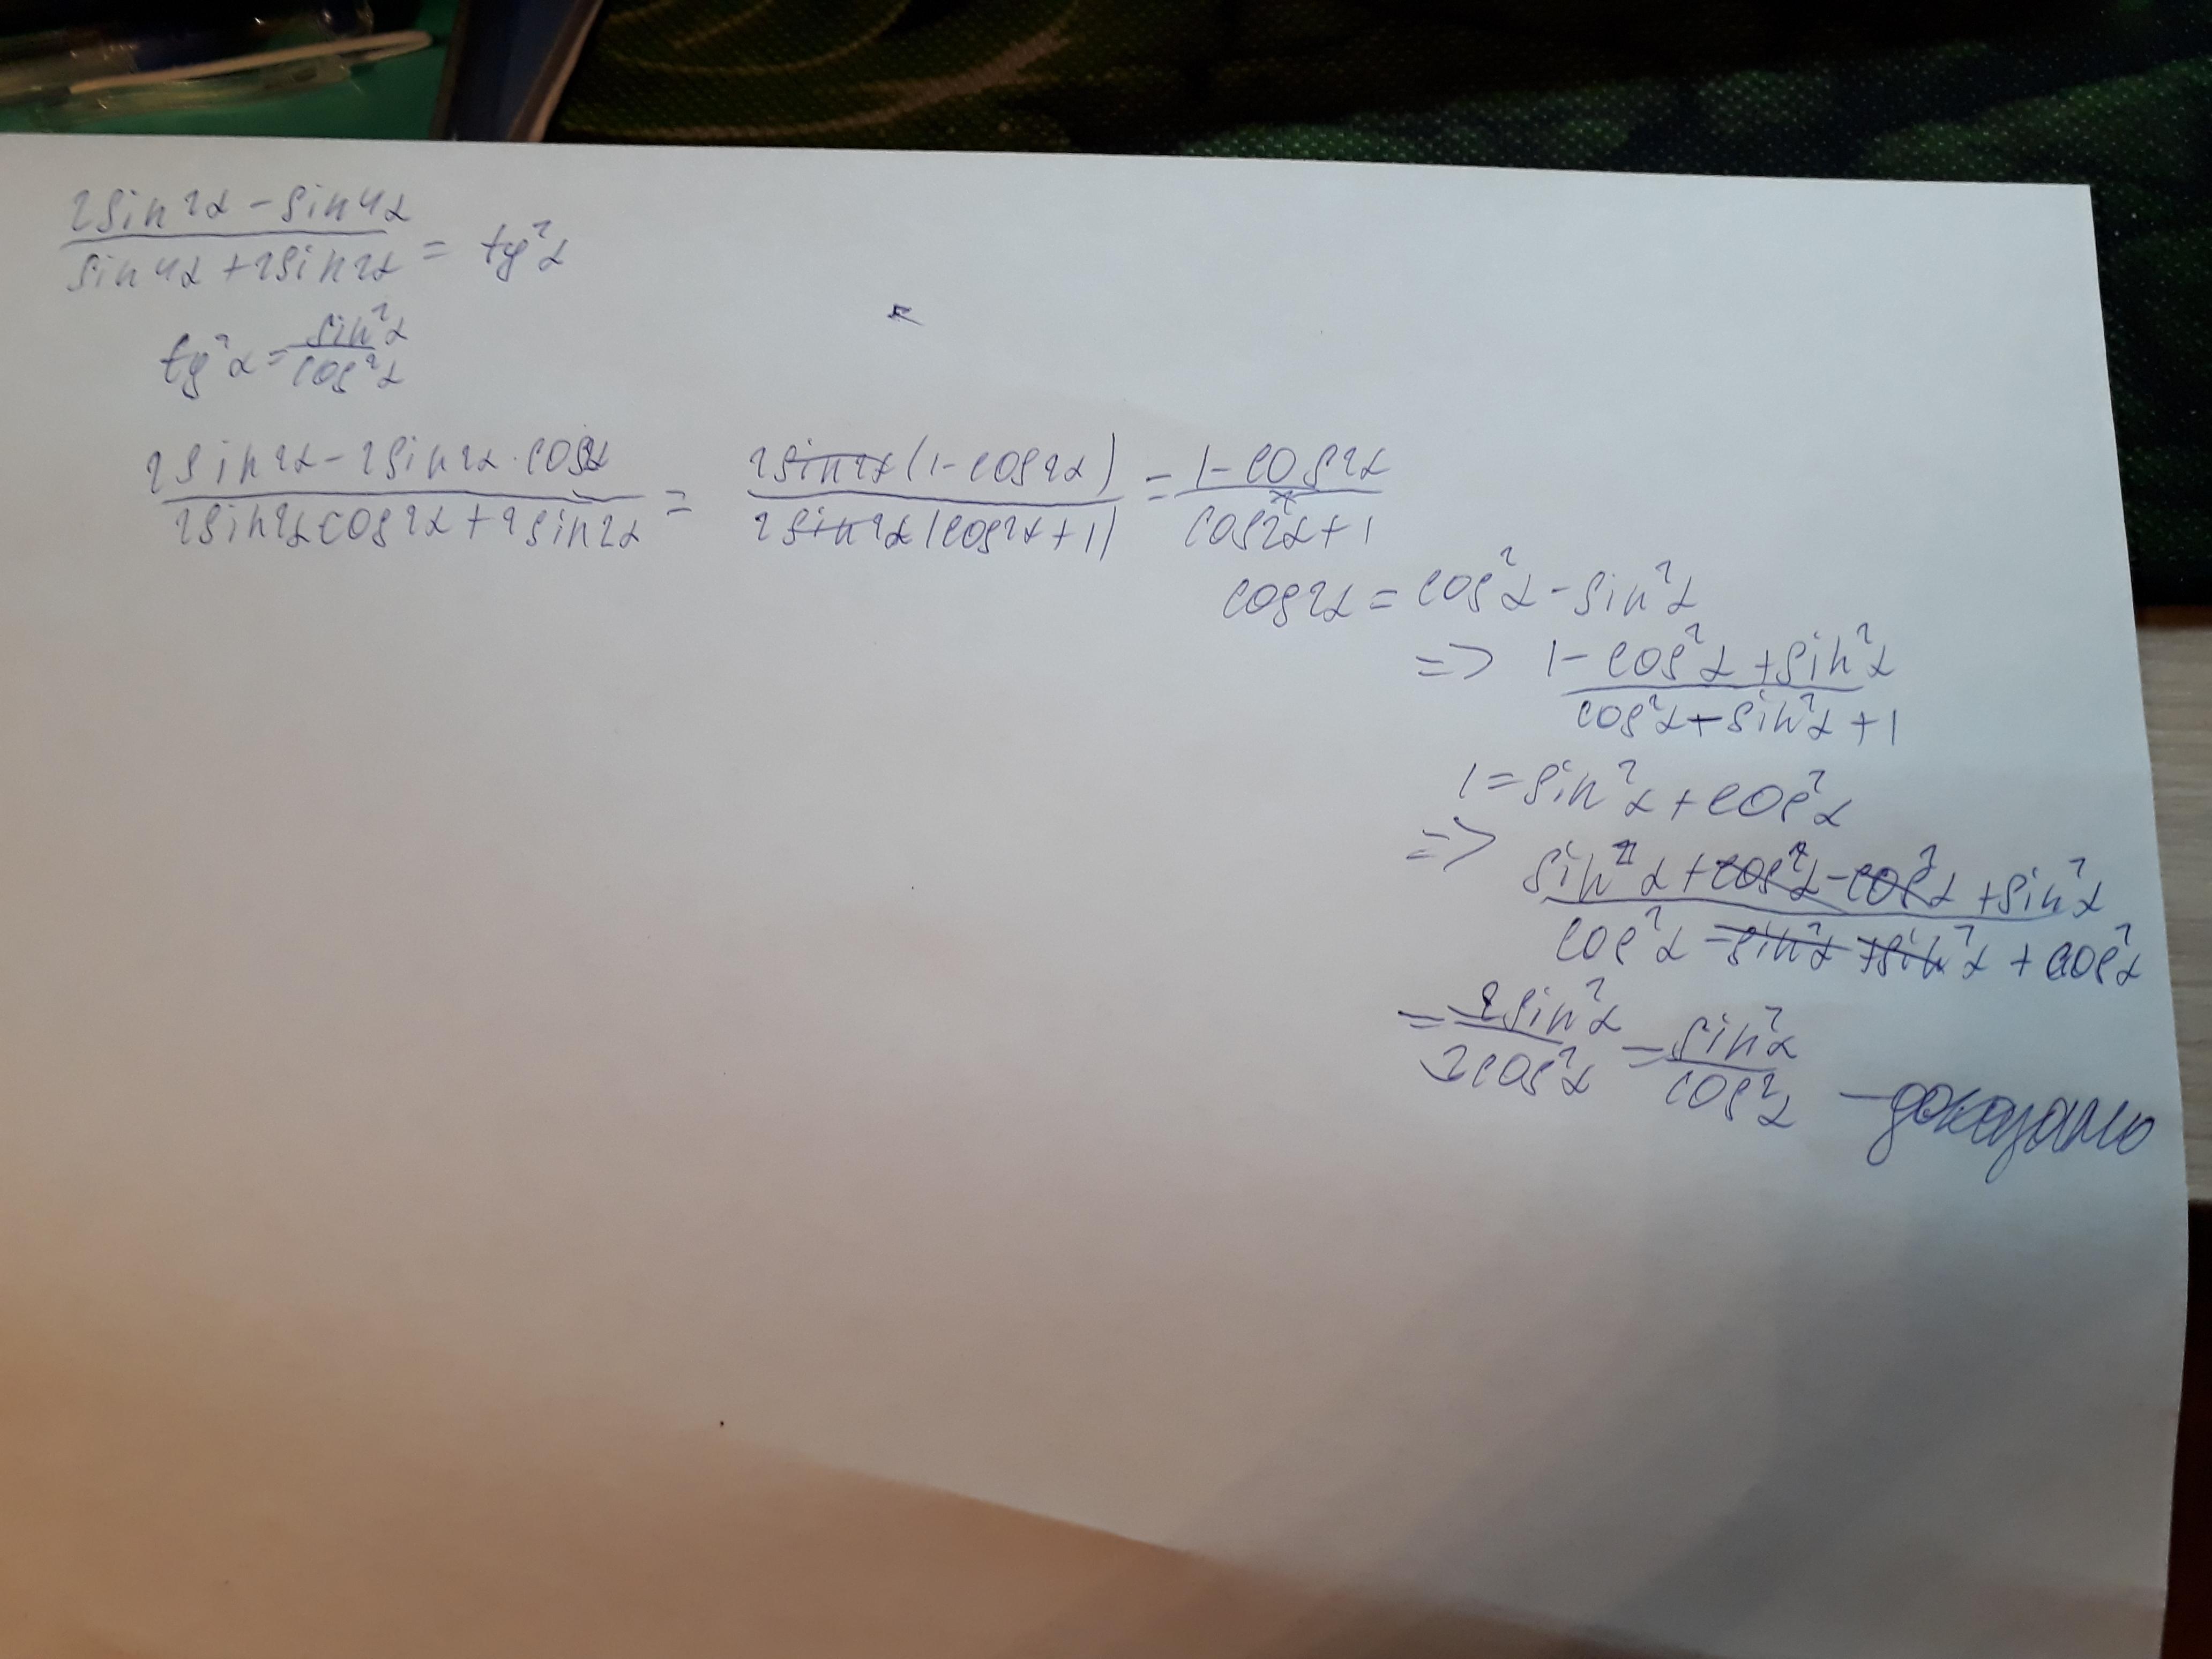 (2sin2α - sin4α)/(sin4α + 2sin2α) = tg²α
tg²α = sin²α/cos²α
(2sin2α - 2sin2α · cos2α)/(2sin2α cos2α + 2sin2α) = (2sin2α(1 - cos2α))/(2sin2α(cos2α + 1)) = (1 - cos2α)/(cos2α + 1)
cos2α = cos²α - sin²α
=> (1 - cos²α + sin²α)/(cos²α - sin²α + 1)
1 = sin²α + cos²α
=> (sin²α + cos²α - cos²α + sin²α)/(cos²α - sin²α + sin²α + cos²α)
= 2sin²α/2cos²α = sin²α/cos²α - доказано